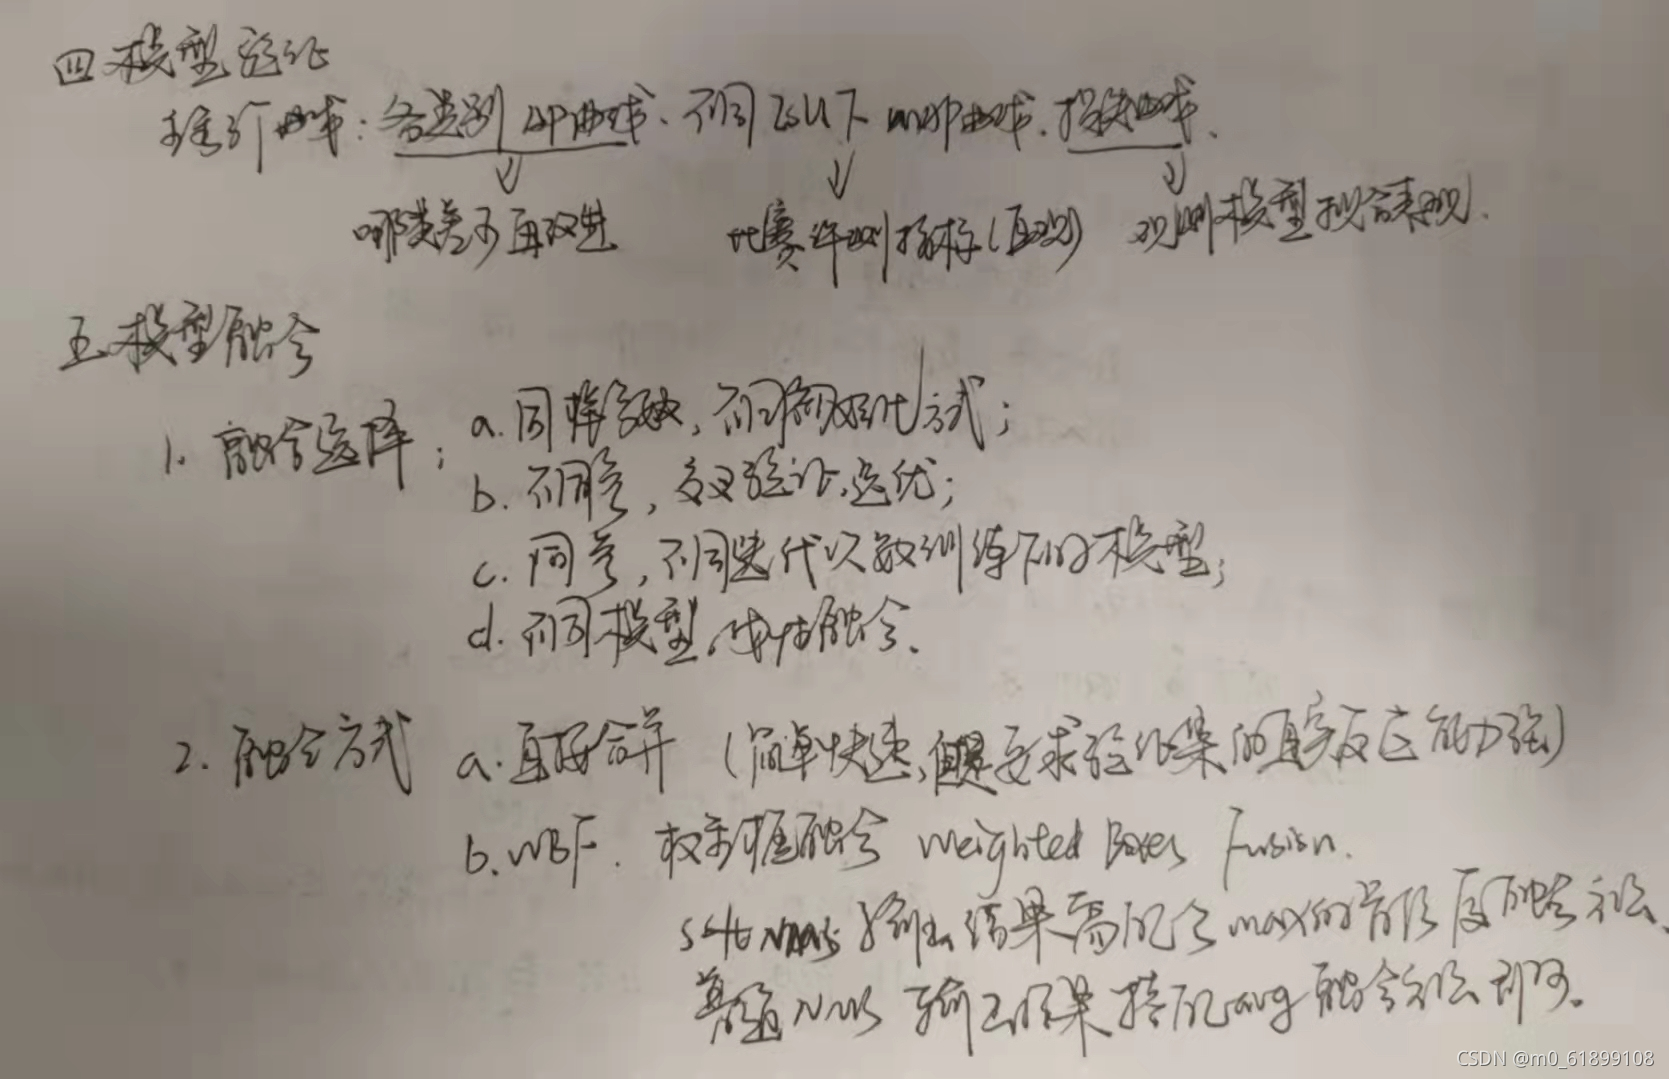 四 模型验证
推荐曲线：各类别 AP曲线、不同 IoU下 mAP曲线、损失曲线、
哪类差可再改进 比赛评测指标（直观） 观测模型拟合表现.
五、模型融合
1. 融合选择：a. 同样参数，不同初始化方式；
b. 不同参，交叉验证、选优；
c. 同参，不同迭代次数训练下的模型；
d. 不同模型，线性融合、
2. 融合方式 a. 直接合并 （简单快速，但是要求验证集的真实反应能力强）
b. WBF. 权重框融合 Weighted Boxes Fusion.
soft NMS 输出结果需配合 max的 融合方法、
基础 NMS 输出结果搭配avg 融合方法即可。
CSDN @m0_61899108